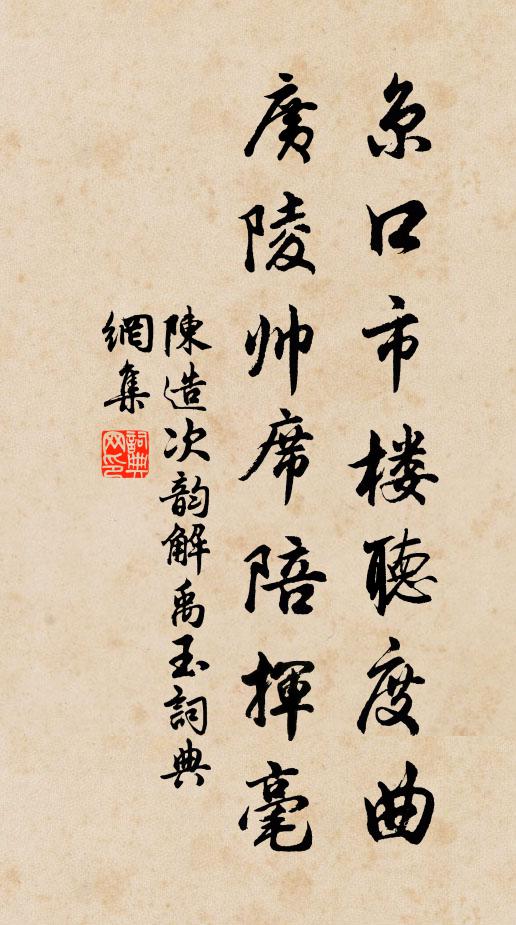 京口市楼聽度曲
廣陵帅席陪揮毫
陳造次韵解禹玉詞典
網集
詞典网印